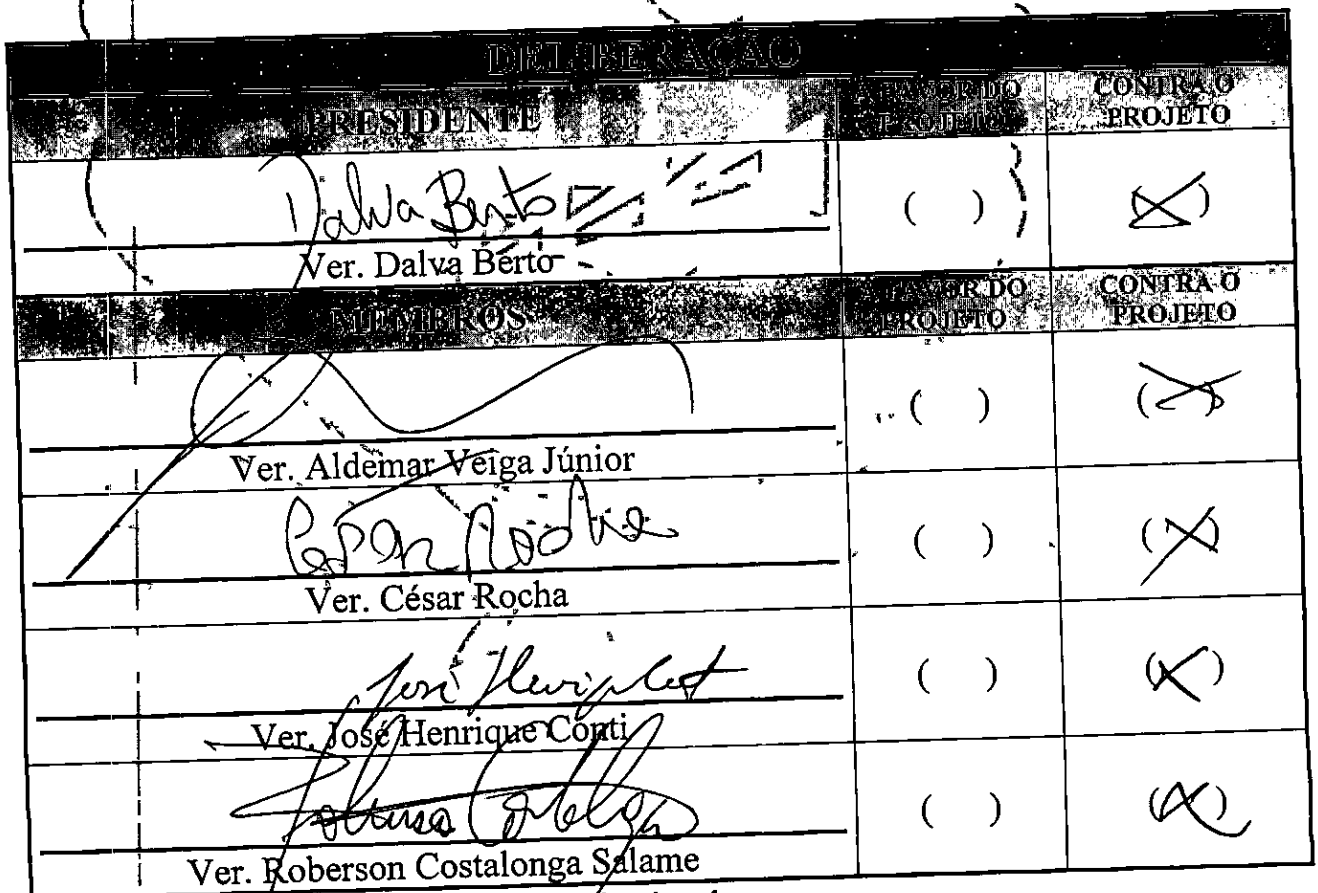 DELIBERAÇÃO
PRESIDENTE
A FAVOR DO PROJETO
CONTRA O PROJETO
Dalva Berto
( ) (X)
Ver. Dalva Berto
MEMBROS
A FAVOR DO PROJETO
CONTRA O PROJETO
( ) (X)
Ver. Aldemar Veiga Júnior
César Rocha
( ) (X)
Ver. César Rocha
José Henrique Conti
( ) (X)
Ver. José Henrique Conti
( ) (X)
Ver. Roberson Costalonga Salame